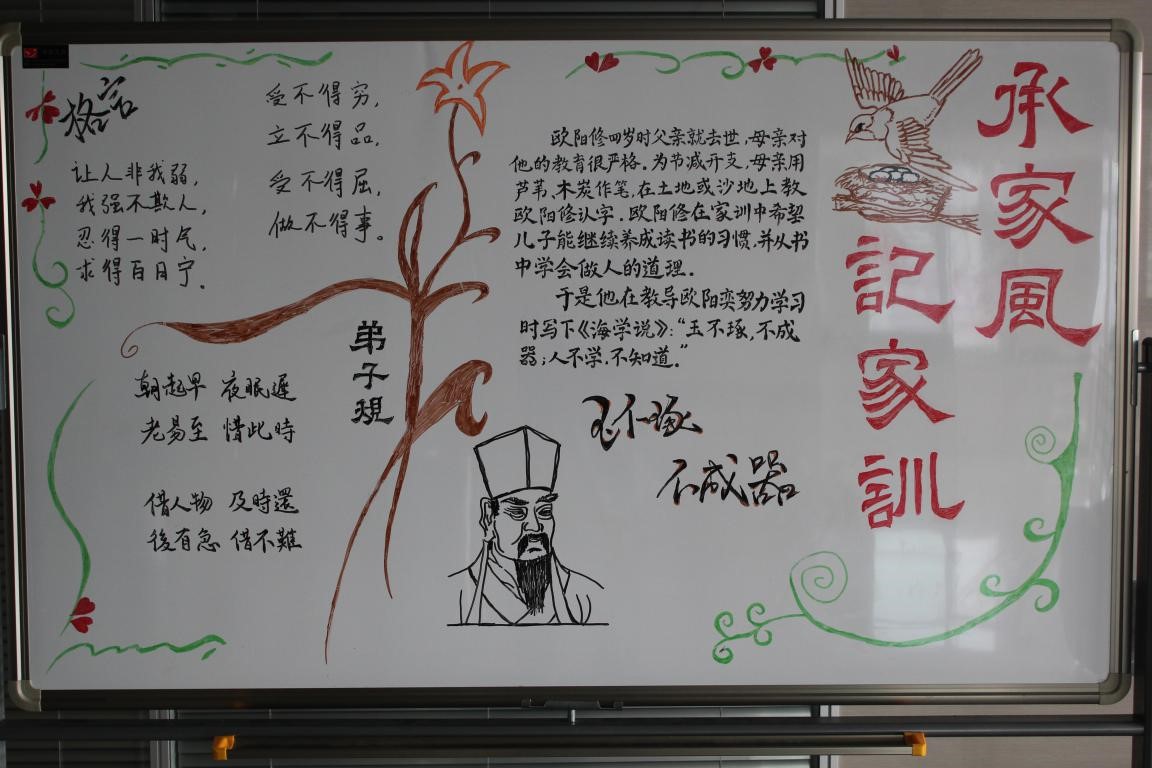 承家风
記家訓
格言
让人非我弱，
我强不欺人，
忍得一时气，
求得百日宁。
受不得穷，
立不得品，
受不得屈，
做不得事。
欧阳修四岁时父亲就去世，母亲对
他的教育很严格。为节减开支，母亲用
芦苇、木炭作笔，在土地或沙地上教
欧阳修认字。欧阳修在家训中希望
儿子能继续养成读书的习惯，并从书
中学会做人的道理。
于是他在教导欧阳奕努力学习
时写下《诲学说》：“玉不琢，不成
器；人不学，不知道。”
弟子規
朝起早 夜眠遲
老易至 惜此時
借人物 及時還
後有急 借不難
玉不琢
不成器